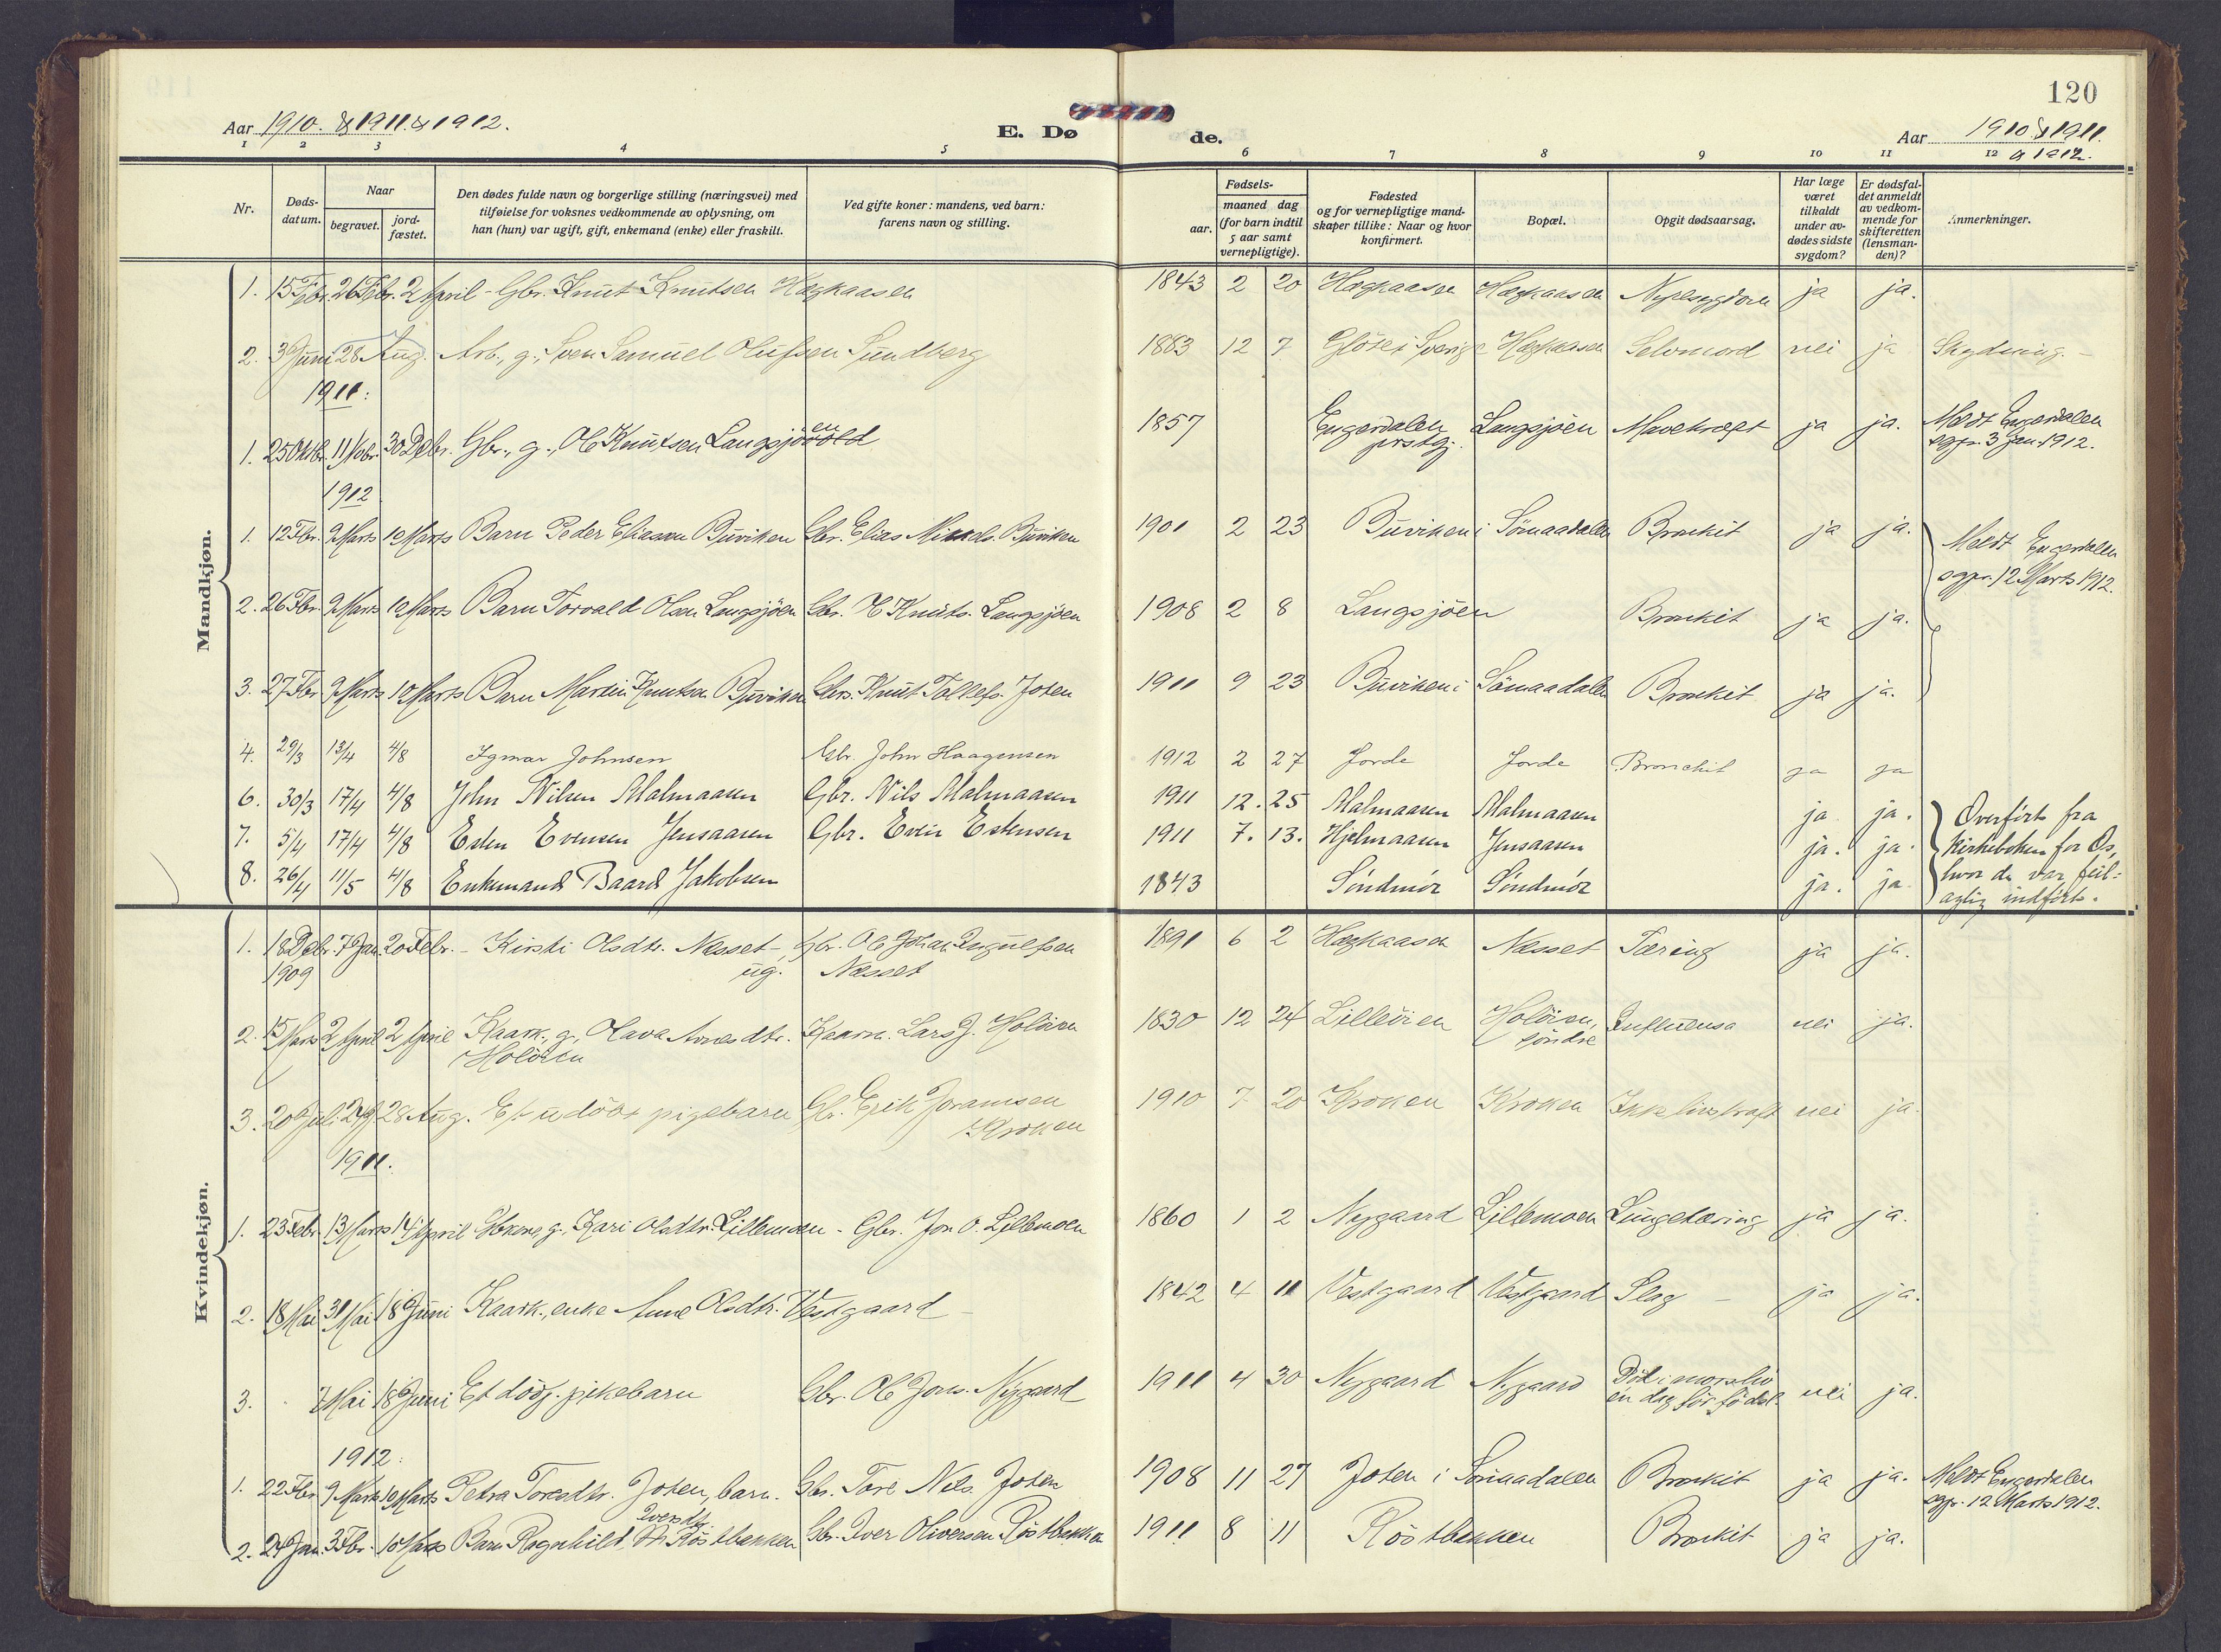 120
Aar 1910. & 1911. & 1912.
E. Dø
de.
Aar 1910 & 1911.
& 1912.
1 2 3 4 5 6 7 8 9 10 11 12
Nr.
Døds-
datum.
Naar
begravet.
jord-
fæstet.
Den dødes fulde navn og borgerlige stilling (næringsvei) med
tilføielse for voksnes vedkommende av oplysning, om
han (hun) var ugift, gift, enkemand (enke) eller fraskilt.
Ved gifte koner: mandens, ved barn:
farens navn og stilling.
Fødsels-
aar.
maaned dag
(for barn indtil
5 aar samt
vernepligtige).
Fødested
og for vernepligtige mand-
skaper tillike: Naar og hvor
konfirmert.
Bopæl.
Opgit dødsaarsag.
Har læge
været
tilkaldt
under av-
dødes sidste
sygdom?
Er dødsfal-
det anmeldt
av vedkom-
mende for
skifteretten
(lensman-
den)?
Anmerkninger.
Mandkjøn.
1. 15 Febr. 26 Febr. 2 April - Gbr. Knut Knutsen Høgkaasen 1843 2 20 Høgkaasen Høgkaasen Nyresygdom ja ja.
2. 3 Juni 28 Aug. Arb., g., Sven Samuel Olufsen Sundberg 1883 12 7 Glöte i Sverige Høgkaasen Selvmord nei ja Skydning. -
1911:
1. 25 Oktbr. 11 Novbr. 30 Debr. Gbr., g., Ole Knutsen Langsjöen 1857 Engerdalen prstgj. Langsjöen Mavekræft ja ja. Meldt Engerdalen
sgpr. 3 Jan. 1912.
1912
1. 12 Fbr. 9 Marts 10 Marts Barn Peder Eliassen Buviken Gbr. Elias Mikkels. Buviken 1901 2 23 Buviken i Sömaadalen Bronkit ja ja. Meldt Engerdalen
sgpr. 12 Marts 1912.
2. 26 Fbr. 9 Marts 10 Marts Barn Torvald Olsen Langsjöen Gbr. O Knuts. Langsjöen 1908 2 8 Langsjöen Bronkit ja ja.
3. 27 Fbr. 9 Marts 10 Marts Barn Martin Knutsen Buviken Gbr. Knut Tollefs. Joten 1911 9 23 Buviken i Sömaadalen Bronkit ja ja.
4. 29/3 13/4 4/8 Igmar Johnsen Gbr. John Haagensen 1912 2 27 Jorde Jorde Bronchit ja ja
6. 30/3 17/4 4/8 John Nilsen Malmaasen Gbr. Nils Malmaasen 1911 12. 25 Malmaasen Malmaasen ja ja. Overført fra
7. 5/4 17/4 4/8 Esten Evensen Jensaasen Gbr. Even Estensen 1911 7. 13. Hjelmaasen Jensaasen ja. ja. kirkeboken for Os,
8. 26/4 11/5 4/8 Enkemand Baard Jakobsen 1843 Söndmör Söndmör ja. ja hvor de var feil-
agtig indført.
Kvindekjøn.
1. 18 Debr. 7 Jan. 20 Febr. - Kirsti Olsdtr. Næsset -, Gbr. Ole Johan Ingulfsen 1891 6 2 Høgkaasen Næsset Tæring ja ja.
1909 ug. Næsset
2. 15 Mars 2 April 2 April Kaark., g., Olava Arnesdtr. Kaarm. Lars J. Holöien 1830 12 24 Lilleöien Holöien, Influensa nei ja.
Holöien söndre
3. 20 Juli 28 Aug. Et udöbt pigebarn Gbr. Erik Joramsen 1910 7 20 Kroken Kroken Ikke livskraft nei ja.
Kroken
1911.
1. 23 Febr. 13 Marts 14 April Gbkone, g., Kari Olsdtr. Lillemoen - Gbr. Jon O. Lillemoen 1860 1 2 Nygaard Lillemoen Lungetæring ja ja.
2. 18 Mai 31 Mai 18 Juni Kaark., enke Anne Olsdtr. Vestgaard - 1842 4 11 Vestgaard Vestgaard Slag - ja ja.
3. 7 Mai 18 Juni Et dödf. pikebarn Gbr. Ole Jons. Nygaard 1911 4 30 Nygaard Nygaard Död i morsliv nei ja.
en dag för fødsel.
1912:
1. 22 Fbr. 9 Marts 10 Marts Petra Toresdtr. Joten, barn. Gbr. Tore Nils. Joten 1908 11 27 Joten i Sömaadalen Bronkit ja ja. Meldt Engerdalen
sgpr. 12 Marts 1912.
Iversdtr.
2. 24 Jan. 3 Fbr. 10 Marts Barn Ragnhild Röstbakken Gbr. Iver Oliversen Röstbakken 1911 8 11 Röstbakken Bronkit ja ja.